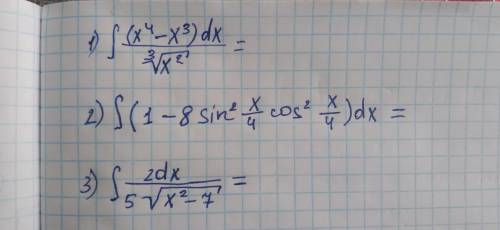 1) ∫ (x⁴ − x³) dx / ∛x² =
2) ∫ (1 − 8 sin² x/4 cos² x/4) dx =
3) ∫ 2dx / 5√x² − 7 =